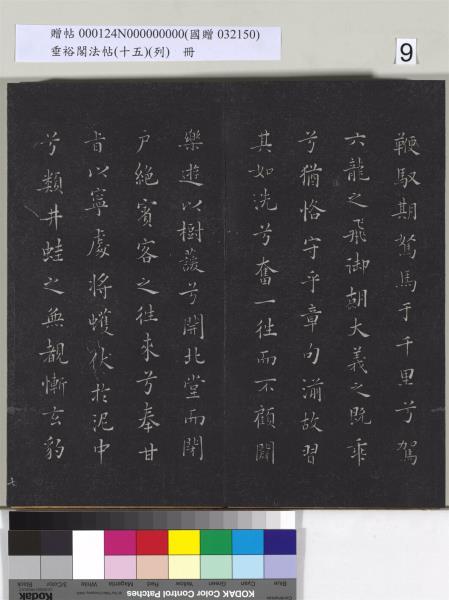 贈帖 000124N000000000(國贈 032150)
垂裕閣法帖(十五)(列) 冊
9
鞭馭期駑馬于千里兮駕
六龍之飛御胡大義之既乖
兮猶恪守乎章句湔故習
其如洗兮奮一往而不顧闢
樂遊以樹萲兮開北堂而閉
戶絕賓客之往來兮奉甘
旨以寧處將蠖伏於泥中
兮類井蛙之無覩慚玄豹
七
Blue Cyan Green Yellow Red Magenta White 3/Color Black
KODAK Color Control Patches